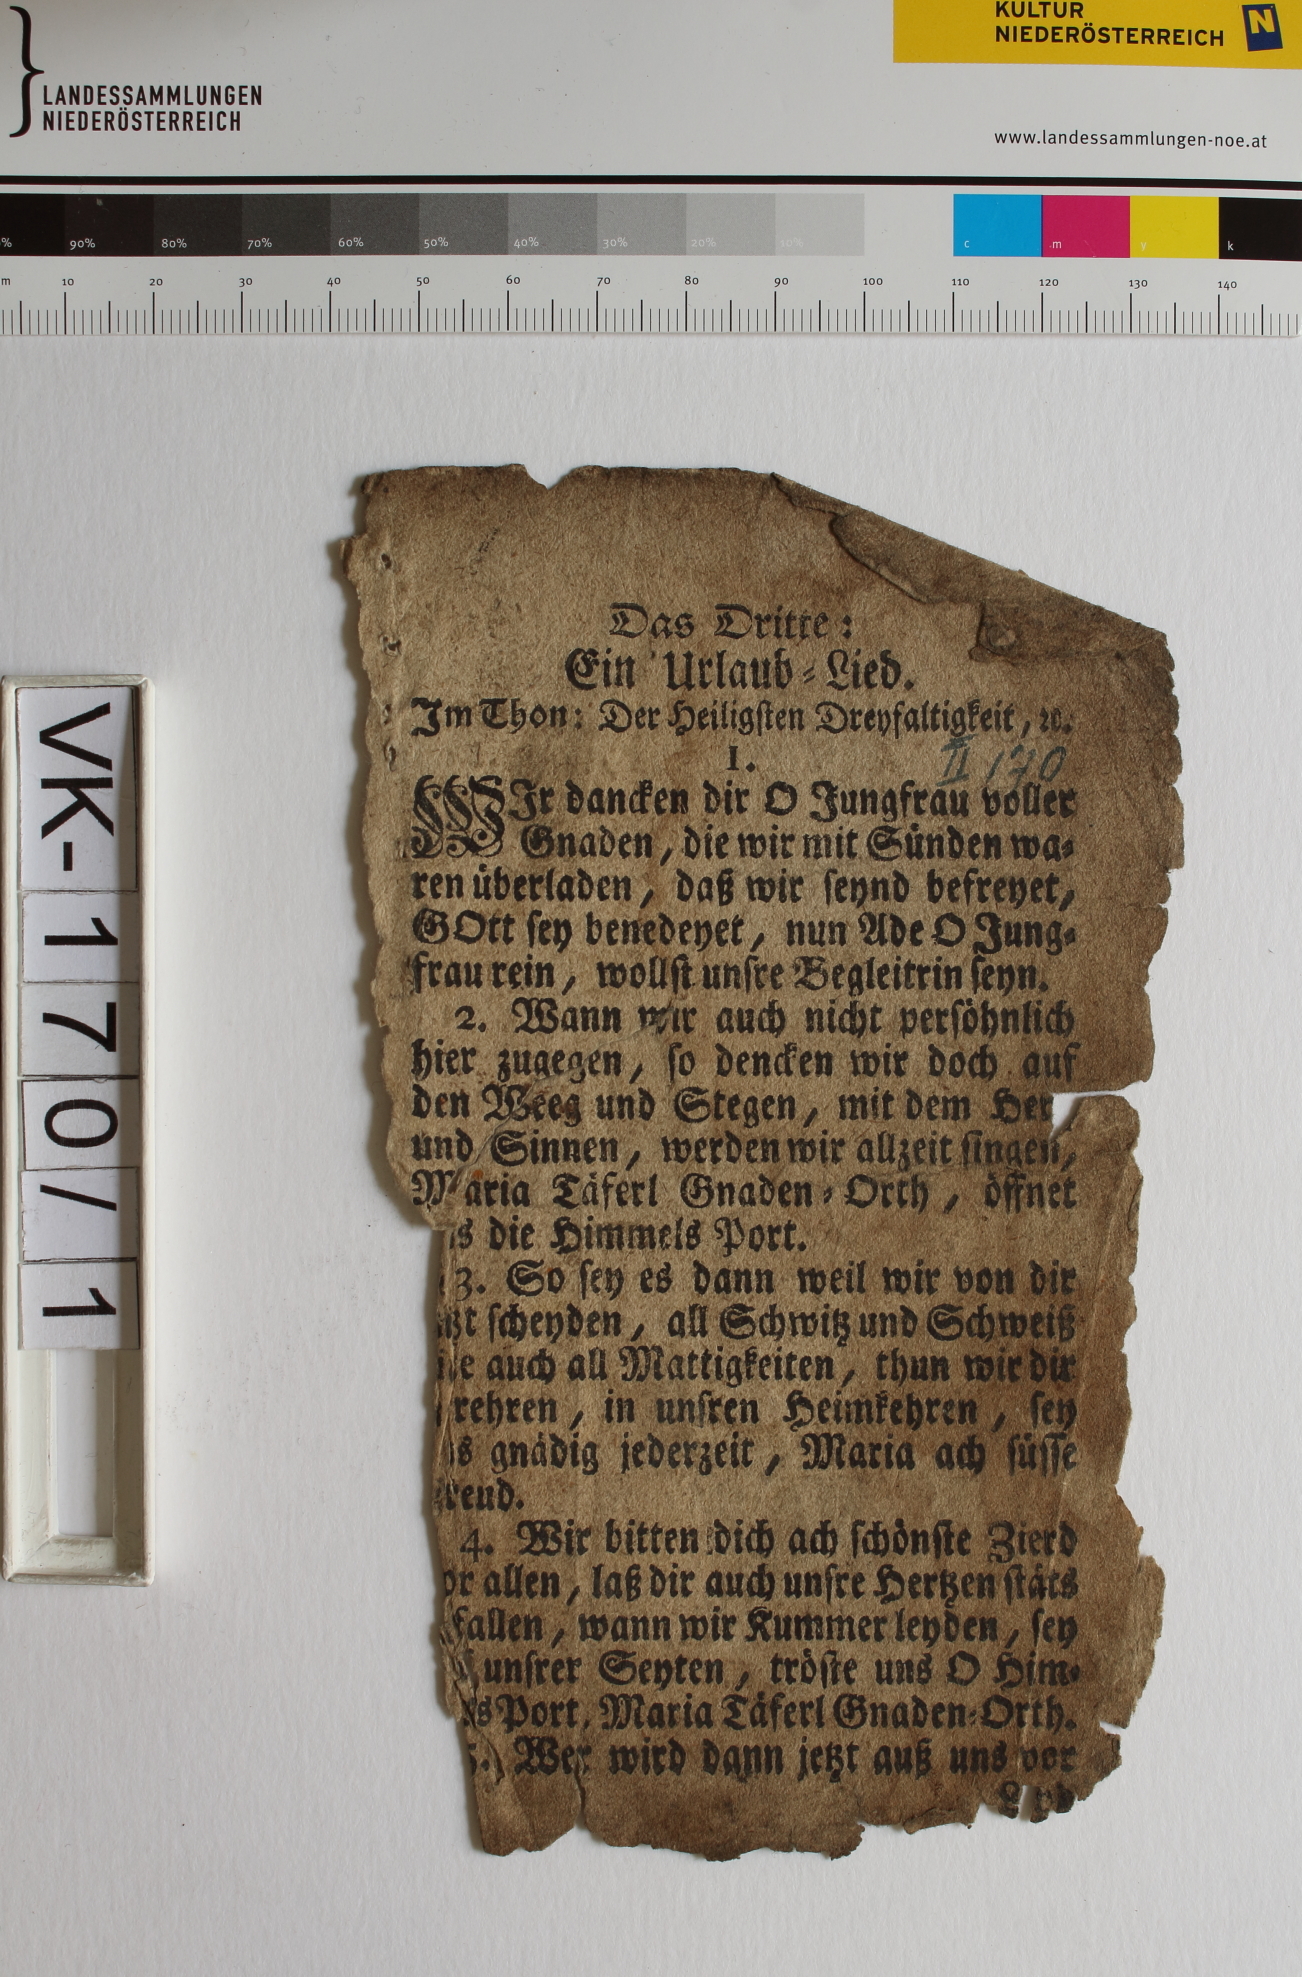 KULTUR
NIEDERÖSTERREICH
N
LANDESSAMMLUNGEN
NIEDERÖSTERREICH
www.landessammlungen-noe.at
90% 80% 70% 60% 50% 40% 30% 20% 10% c m y k
10 20 30 40 50 60 70 80 90 100 110 120 130 140
VK-170/1
Das Dritte:
Ein Urlaub-Lied.
Im Thon: Der Heiligsten Dreyfaltigkeit, ꝛc.
II 170
1.
WIr dancken dir O Jungfrau voller
Gnaden, die wir mit Sünden wa-
ren überladen, daß wir seynd befreyet,
GOtt sey benedeyet, nun Ade O Jung-
frau rein, wollst unsre Begleitrin seyn.
2. Wann wir auch nicht persöhnlich
hier zugegen, so dencken wir doch auf
den Weeg und Stegen, mit dem Her
und Sinnen, werden wir allzeit singen,
Maria Täferl Gnaden-Orth, öffnet
s die Himmels Port.
3. So sey es dann weil wir von dir
tzt scheyden, all Schwitz und Schweiß
e auch all Mattigkeiten, thun wir dir
rehren, in unsren Heimkehren, sey
s gnädig jederzeit, Maria ach süsse
reud.
4. Wir bitten dich ach schönste Zierd
or allen, laß dir auch unsre Hertzen stäts
fallen, wann wir Kummer leyden, sey
unsrer Seyten, tröste uns O Him-
s Port, Maria Täferl Gnaden-Orth.
5. Wer wird dann jetzt auß uns vor